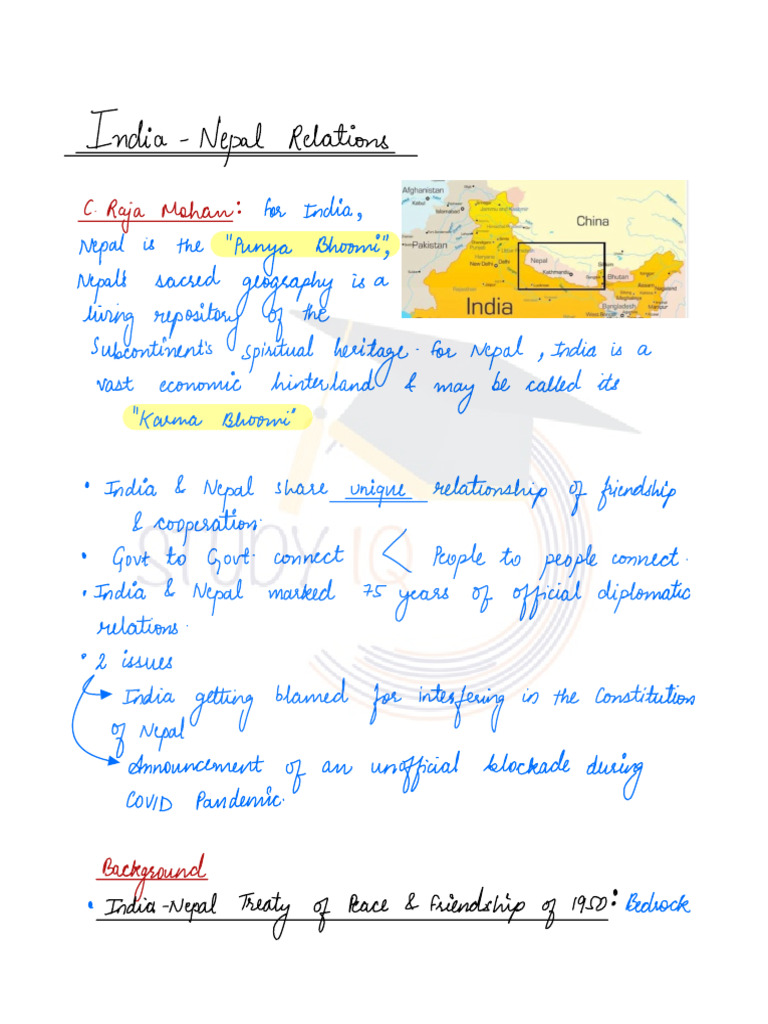 India - Nepal Relations
C. Raja Mohan: for India,
Nepal is the "Punya Bhoomi",
Nepal's sacred geography is a
living repository of the
Subcontinent's spiritual heritage. for Nepal, India is a
vast economic hinterland & may be called its
"Karma Bhoomi"
Afghanistan
Kabul
Islamabad
Jammu and Kashmir
Pakistan
China
New Delhi
Delhi
Nepal
Kathmandu
Sikkim
Bhutan
Assam
Nagaland
Meghalaya
Bangladesh
India
• India & Nepal share unique relationship of friendship
& cooperation.
• Govt to Govt. connect < People to people connect.
• India & Nepal marked 75 years of official diplomatic
relations.
• 2 issues
India getting blamed for interfering in the Constitution
of Nepal
Announcement of an unofficial blockade during
COVID Pandemic.
STUDY IQ
Background
• India-Nepal Treaty of Peace & Friendship of 1950: Bedrock